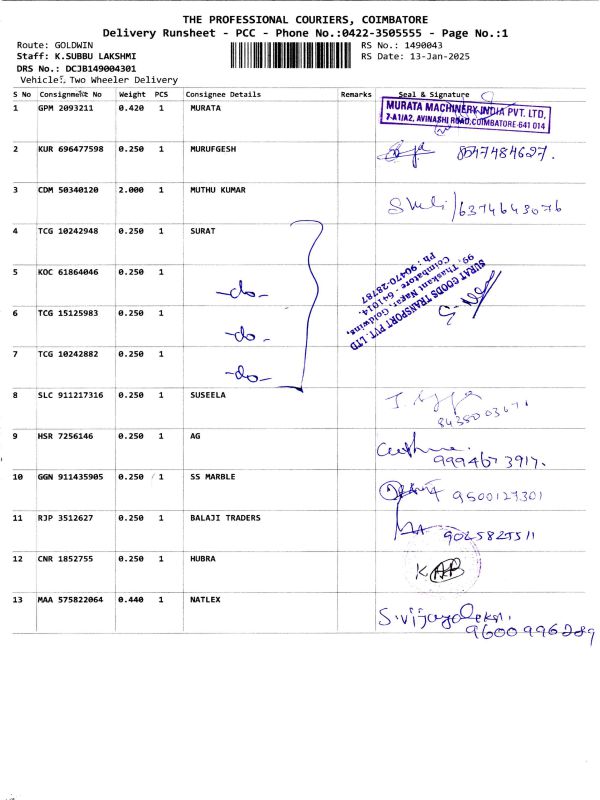 THE PROFESSIONAL COURIERS, COIMBATORE
Delivery Runsheet - PCC - Phone No.:0422-3505555 - Page No.:1
Route: GOLDWIN RS No.: 1490043
Staff: K.SUBBU LAKSHMI RS Date: 13-Jan-2025
DRS No.: DCJB149004301
Vehicle: Two Wheeler Delivery
S No Consignment No Weight PCS Consignee Details Remarks Seal & Signature
1 GPM 2093211 0.420 1 MURATA
MURATA MACHINERY INDIA PVT. LTD,
7-A1/A2, AVINASHI ROAD, COIMBATORE-641 014
2 KUR 696477598 0.250 1 MURUFGESH 8547484627.
3 CDM 50340120 2.000 1 MUTHU KUMAR 6374643076
4 TCG 10242948 0.250 1 SURAT
SURAT GOODS TRANSPORT PVT. LTD
99, Thaskant Nagar, Goldwins,
Coimbatore - 641014.
Ph : 90470-28787
5 KOC 61864046 0.250 1 -do-
6 TCG 15125983 0.250 1 -do-
7 TCG 10242882 0.250 1 -do-
8 SLC 911217316 0.250 1 SUSEELA
9 HSR 7256146 0.250 1 AG 9994673917.
10 GGN 911435905 0.250 1 SS MARBLE 9500127301
11 RJP 3512627 0.250 1 BALAJI TRADERS 9025825511
12 CNR 1852755 0.250 1 HUBRA
13 MAA 575822064 0.440 1 NATLEX S.vijayalekmi.
9600996289